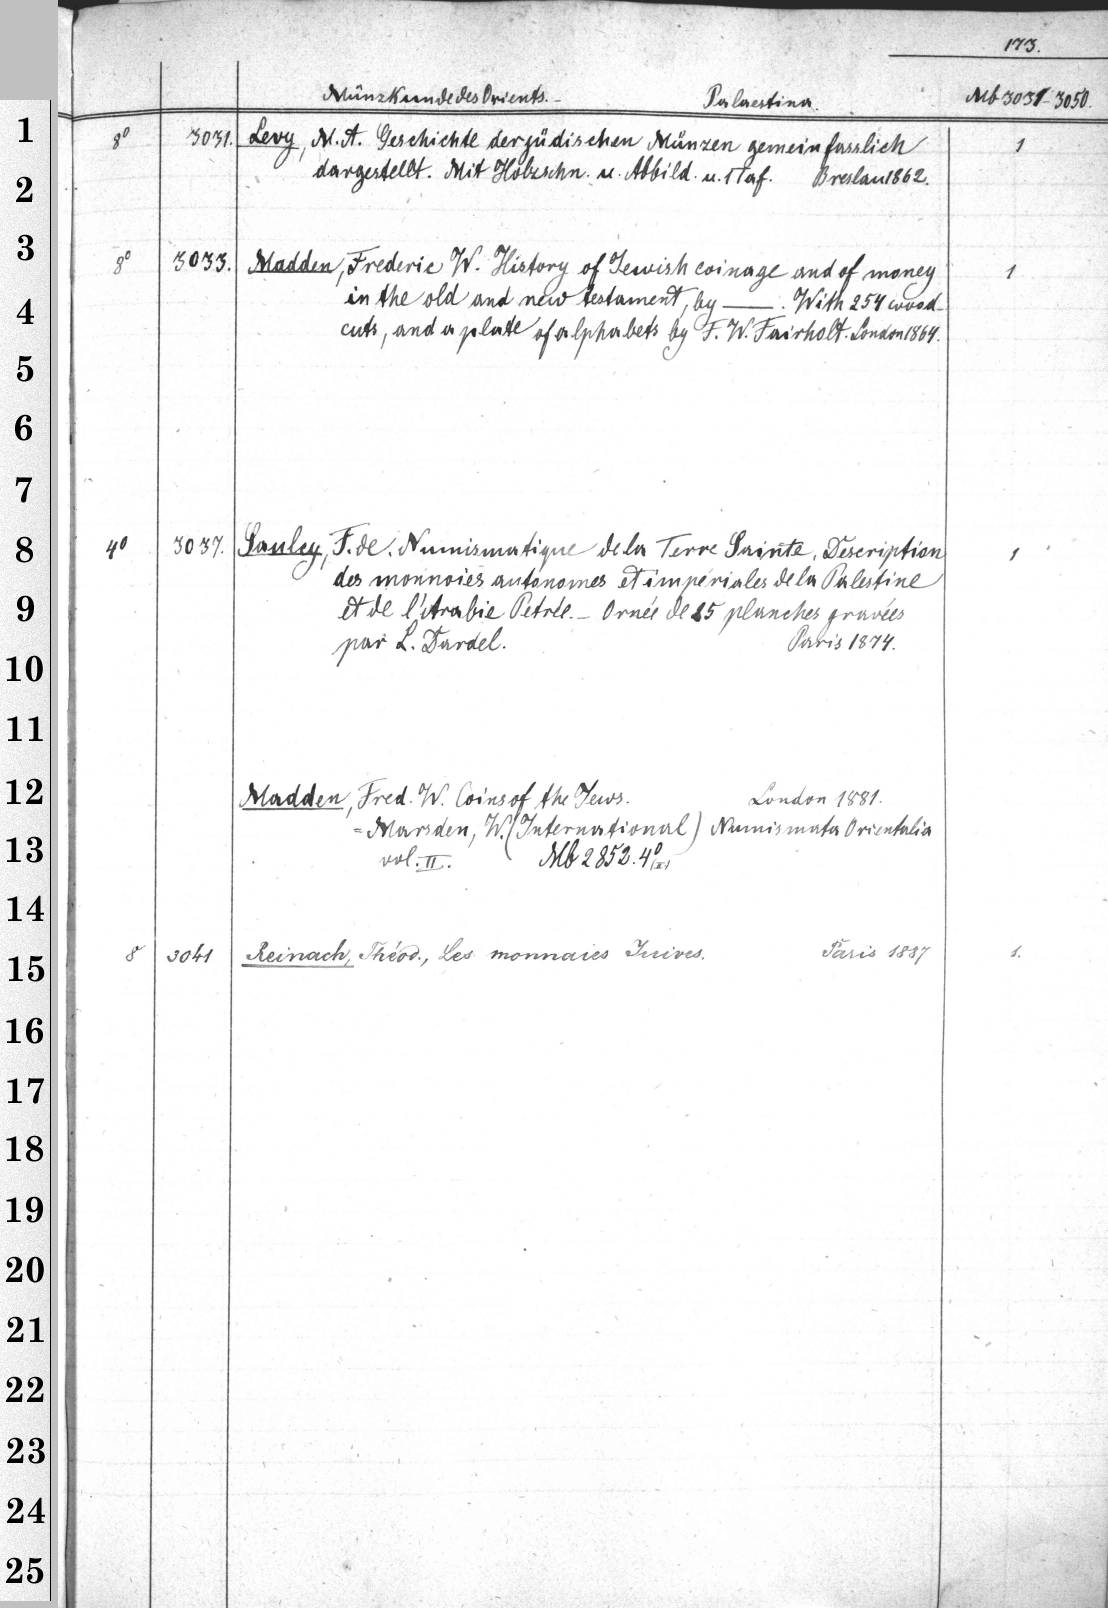 173.
Münzkunde des Orients. – Palaestina. Mb 3031–3050.
1
8° 3031. Levy, M. A. Geschichte der jüdischen Münzen gemeinfasslich 1
dargestellt. Mit Holzschn. u. Abbild. u. 1 Taf. Breslau 1862.
2
3
8° 3033. Madden, Frederic W. History of Jewish coinage and of money 1
in the old and new testament, by ——. With 254 wood-
4
cuts, and a plate of alphabets by F. W. Fairholt. London 1864.
5
6
7
8
4° 3037. Saulcy, F. de. Numismatique de la Terre Sainte. Description 1
des monnoies autonomes et impériales de la Palestine
9
et de l'Arabie Petrée. – Ornée de 25 planches gravées
par L. Dardel. Paris 1874.
10
11
12
Madden, Fred. W. Coins of the Jews. London 1881.
= Marsden, W. (International) Numismata Orientalia
13
vol. II. Mb 2852. 4° (II)
14
15
8 3041 Reinach, Théod., Les monnaies Juives. Paris 1887 1.
16
17
18
19
20
21
22
23
24
25